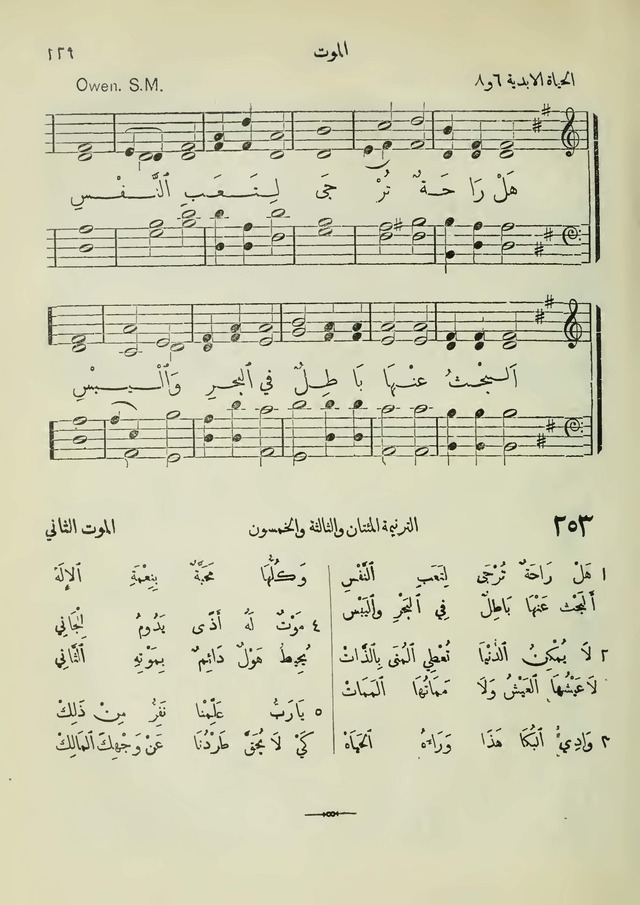 ٢٢٩
الموت
Owen. S.M.
الحياة الابدية ٦و٨
هَلْ رَا حَـةٌ تُرْ جَى لِتَعَبِ ٱلنَّفْسِ
اَلْبَحْثُ عَنْهَا بَا طِلٌ فِي ٱلْبَحْرِ وَٱلْيَبْسِ
٢٥٣
الترنيمة المئتان والثالثة والخمسون
الموت الثاني
١ هَلْ رَاحَةٌ تُرْجَى لِتَعَبِ ٱلنَّفْسِ
أَلْبَحْثُ عَنْهَا بَاطِلٌ فِي ٱلْبَحْرِ وَٱلْيَبْسِ
٢ لَا يُمْكِنُ ٱلدُّنْيَا تُعْطِي ٱلْمُنَى بِٱلذَّاتْ
لَا عَيْشُهَا ٱلْعَيْشُ وَلَا مَمَاتُهَا ٱلْمَمَاتْ
٣ وَادِيُّ ٱلْبُكَا هَذَا وَرَاءَهُ ٱلْحَيَاهْ
وَكُلُّهَا مَحَبَّةٌ بِنِعْمَةِ ٱلْإِلَهْ
٤ مَوْتٌ لَهُ أَذًى يَدُومُ لِلْجَانِي
يُحِيطُ هَوْلٌ دَائِمٌ بِمَوْتِهِ ٱلثَّانِي
٥ يَارَبُّ عَلِّمْنَا نَفِرُّ مِنْ ذَلِكْ
كَيْ لَا يُحَقَّ طَرْدُنَا عَنْ وَجْهِكَ ٱلْمَالِكْ